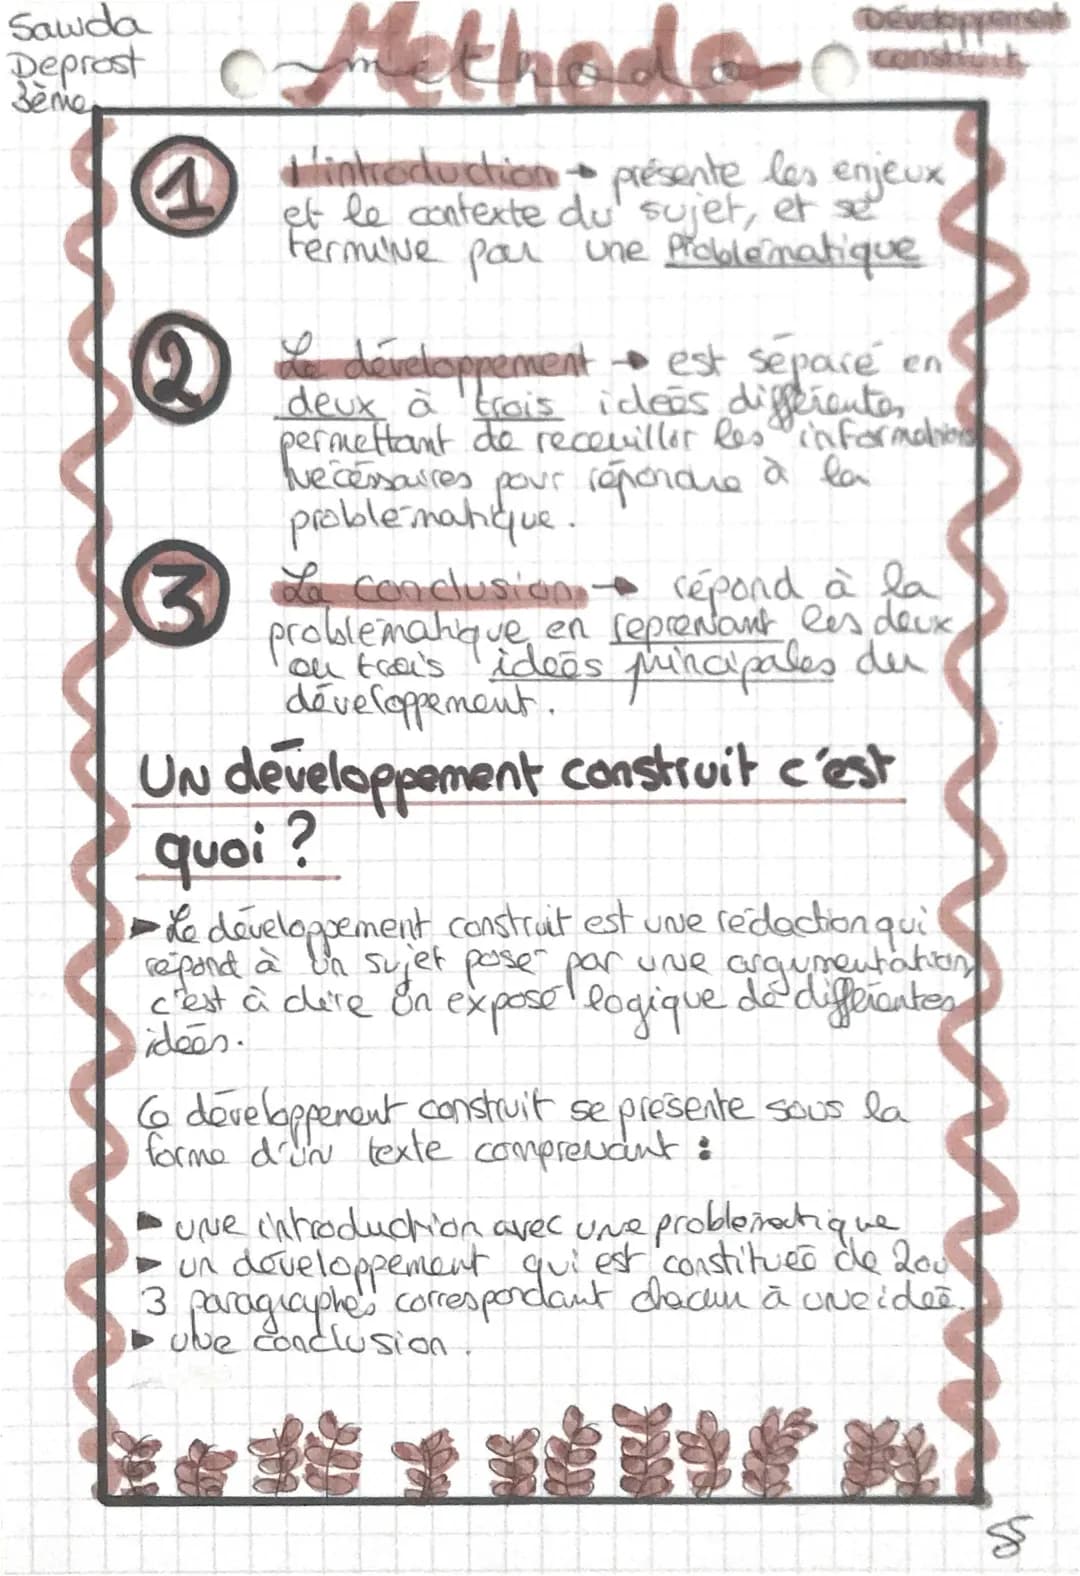 Sawda
Deprost
3ème
Méthodo
methodo
Développement
construit
1
L'introduction → présente les enjeux
et le contexte du sujet, et se
termine par une Problématique
2
Le développement → est séparé en
deux à trois idées différentes,
permettant de receuillir les informations
nécéssaires pour répondre à la
problématique.
3
La conclusion → répond à la
problématique en reprenant les deux
ou trois idées principales du
développement.
Un développement construit c'est
quoi ?
► Le développement construit est une rédaction qui
répond à un sujet posé par une argumentation,
c'est à dire un exposé logique de différentes
idées.
Ce développement construit se présente sous la
forme d'un texte comprenant :
► une introduction avec une problématique
► un développement qui est constitueé de 2 ou
3 paragraphes correspondant chacun à une ideé.
► une conclusion.